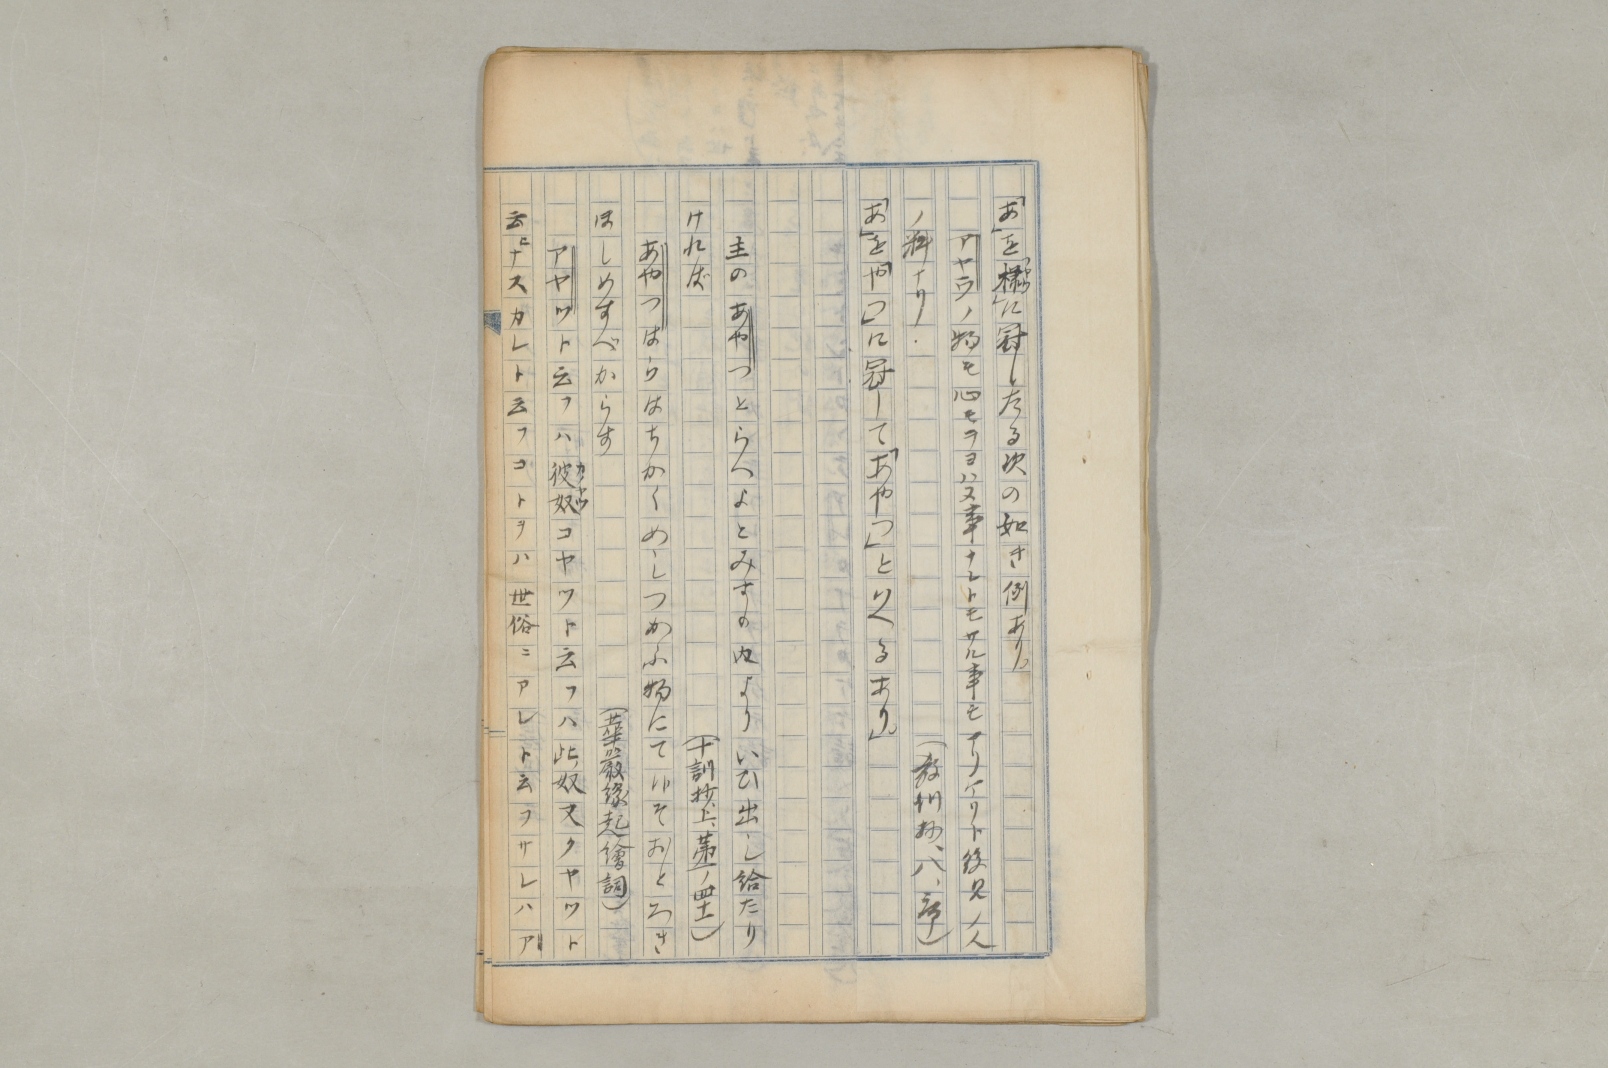 「あ」を「様」に冠したる次の如き例あり。
アヤウノ物モ心モヲヨハヌ事ナレトモサル事モアリケリト後見ノ人
ノ料ナリ.
(教訓抄、八、)
「あ」を「やつ」に冠して「あやつ」といへるあり」
主のあやつとらへよとみすの内よりいひ出し給たり
ければ
(十訓抄上、第一ノ四十)
あやつはらはちかくめしつかふ物にてこそおとろき
ほしめすべからす
(華厳縁起繪詞)
アヤツト云フハ彼奴コヤツト云フハ此奴又クヤツト
云ニナスカレト云フコトヲハ世俗ニアレト云フサレハア